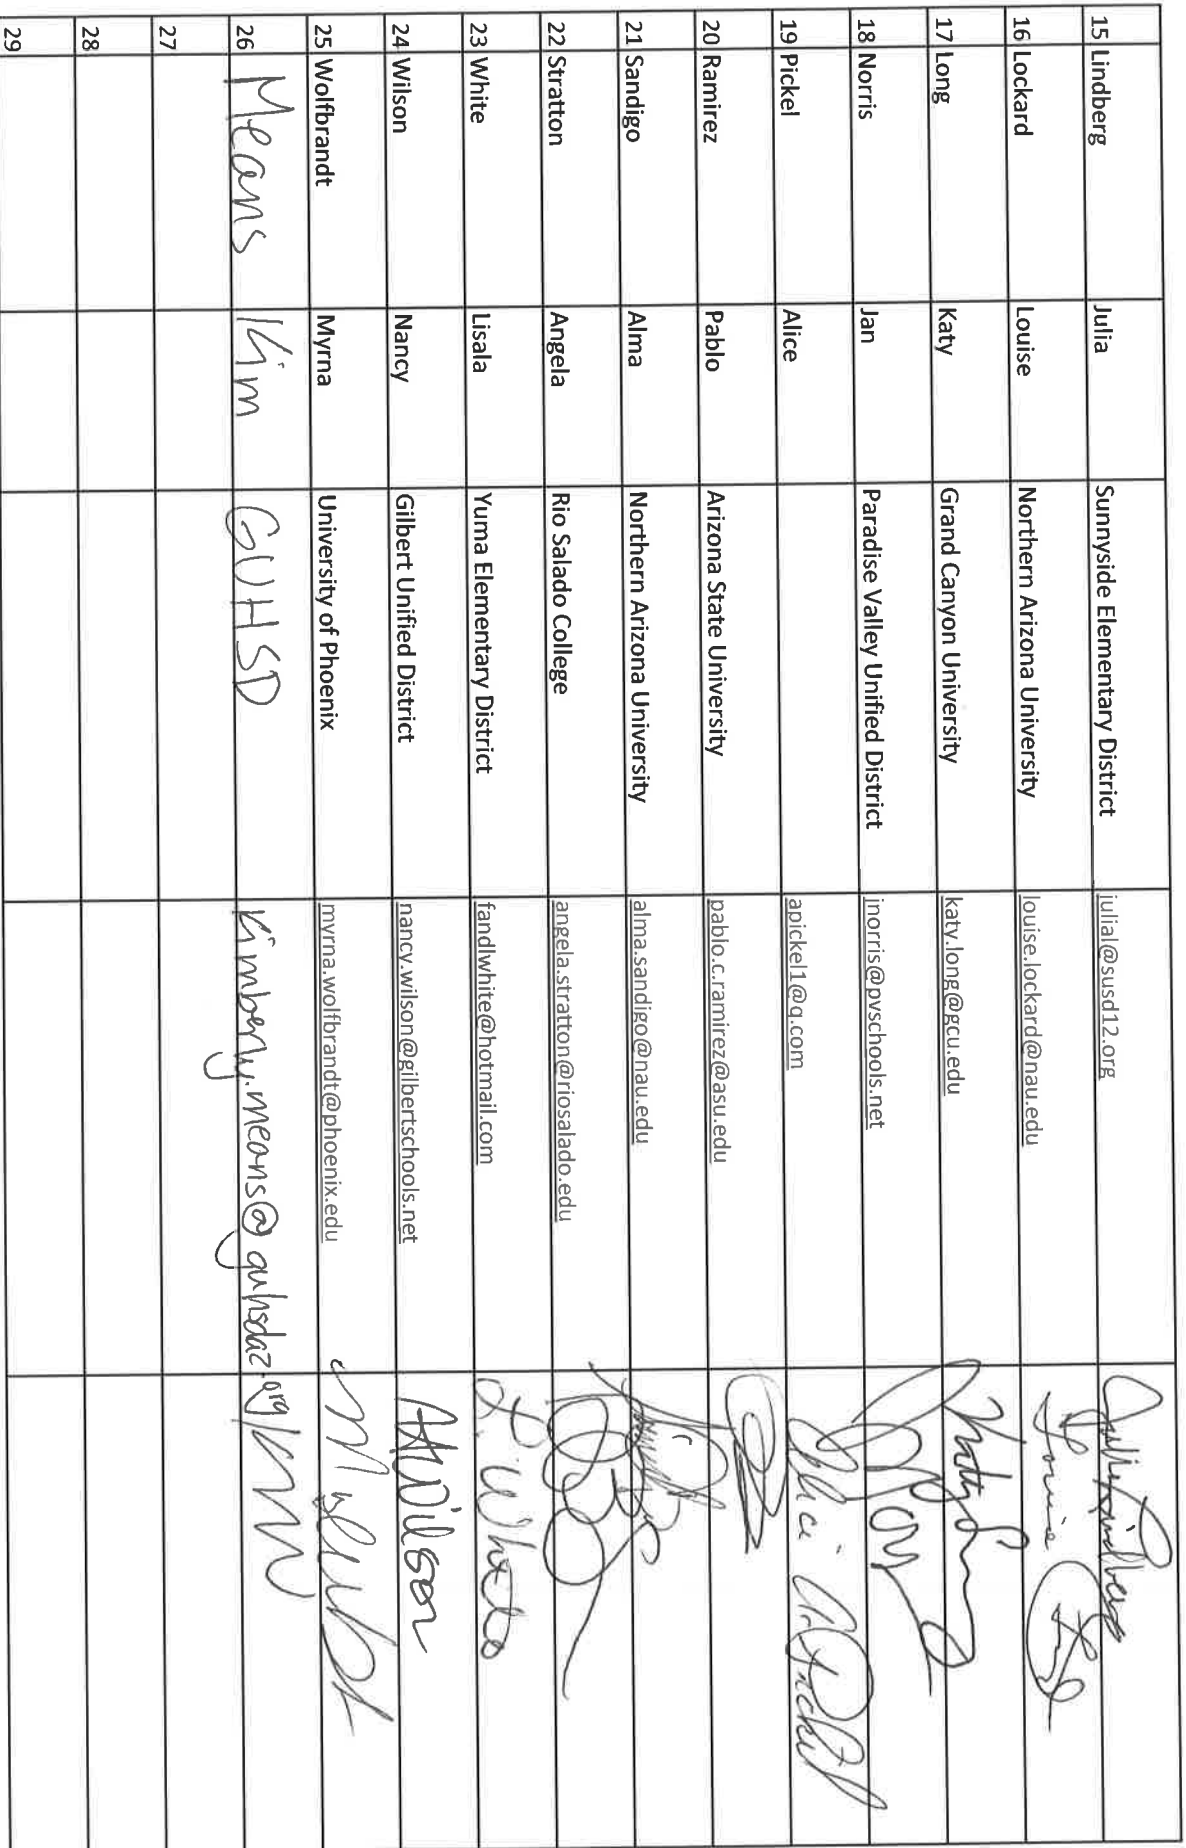 15 Lindberg Julia Sunnyside Elementary District julial@susd12.org
16 Lockard Louise Northern Arizona University louise.lockard@nau.edu Louise
17 Long Katy Grand Canyon University katy.long@gcu.edu
18 Norris Jan Paradise Valley Unified District jnorris@pvschools.net
19 Pickel Alice apickel1@q.com
20 Ramirez Pablo Arizona State University pablo.c.ramirez@asu.edu
21 Sandigo Alma Northern Arizona University alma.sandigo@nau.edu
22 Stratton Angela Rio Salado College angela.stratton@riosalado.edu
23 White Lisala Yuma Elementary District fandlwhite@hotmail.com
24 Wilson Nancy Gilbert Unified District nancy.wilson@gilbertschools.net Wilson
25 Wolfbrandt Myrna University of Phoenix myrna.wolfbrandt@phoenix.edu
26 Means Kim GUHSD Kimberly.means@guhsdaz.org
27
28
29